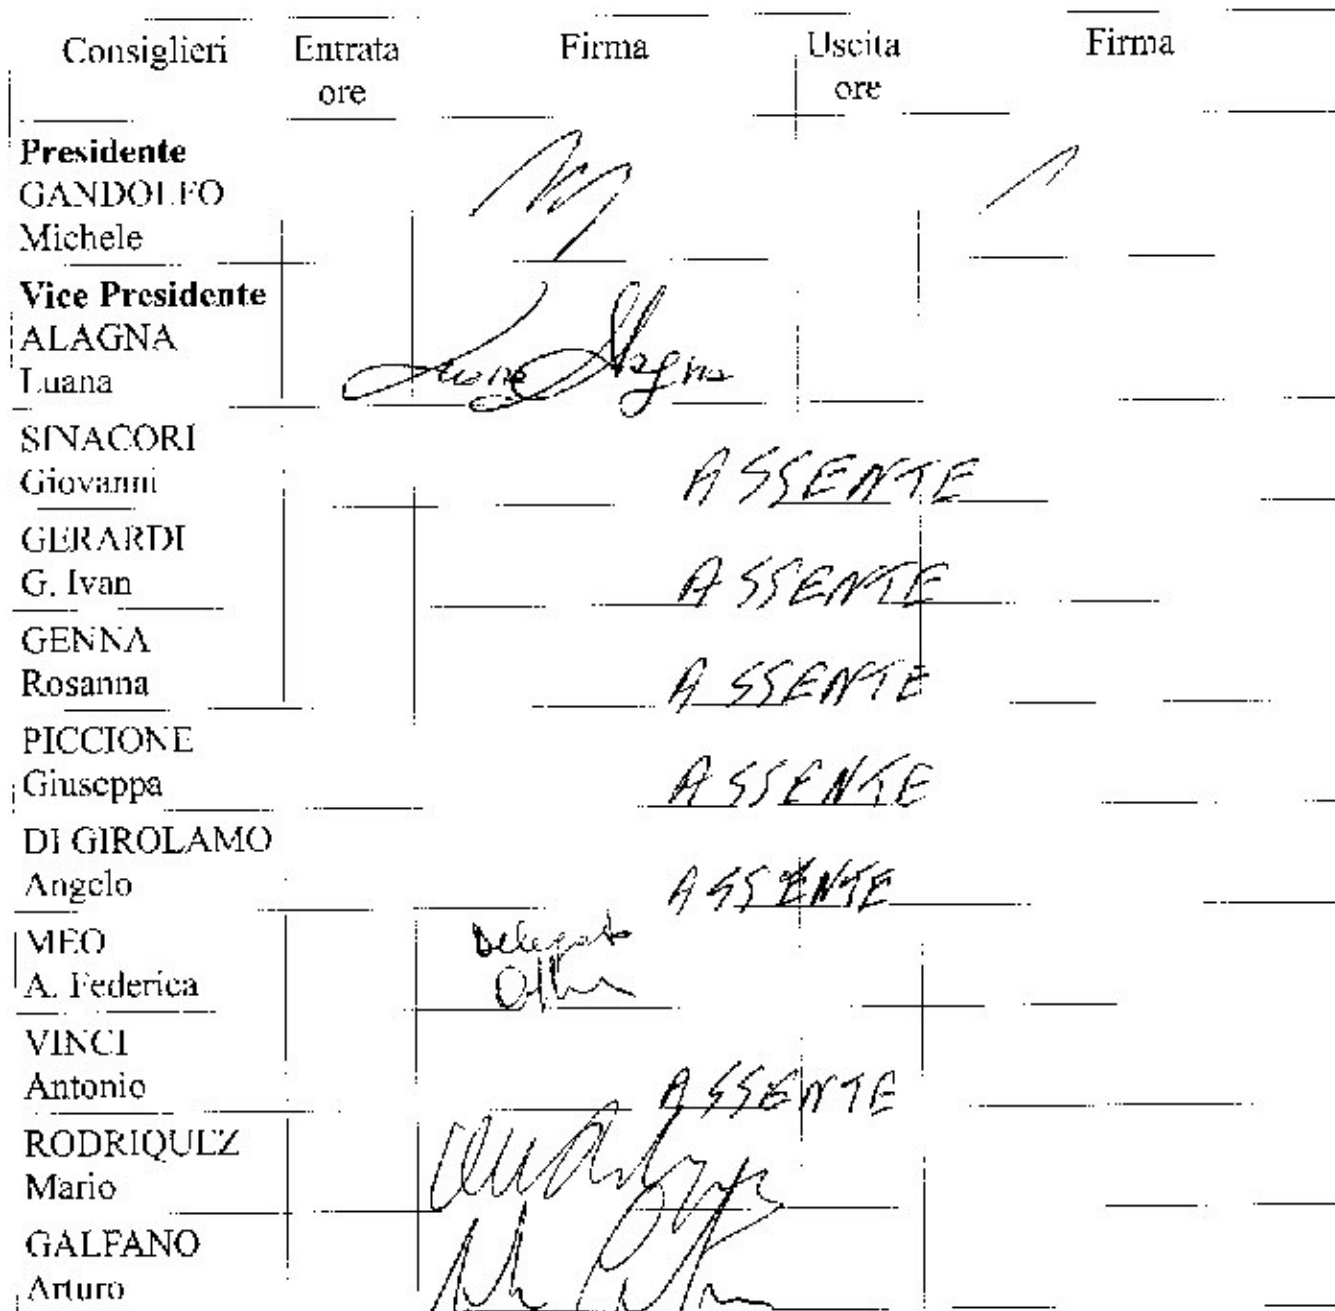 Consiglieri Entrata ore Firma Uscita ore Firma
Presidente
GANDOLFO
Michele
Vice Presidente
ALAGNA
Luana
Luana Alagna
SINACORI
Giovanni ASSENTE
GERARDI
G. Ivan ASSENTE
GENNA
Rosanna ASSENTE
PICCIONE
Giuseppa ASSENTE
DI GIROLAMO
Angelo ASSENTE
MEO Delegato
A. Federica
VINCI
Antonio ASSENTE
RODRIQUEZ
Mario
GALFANO
Arturo